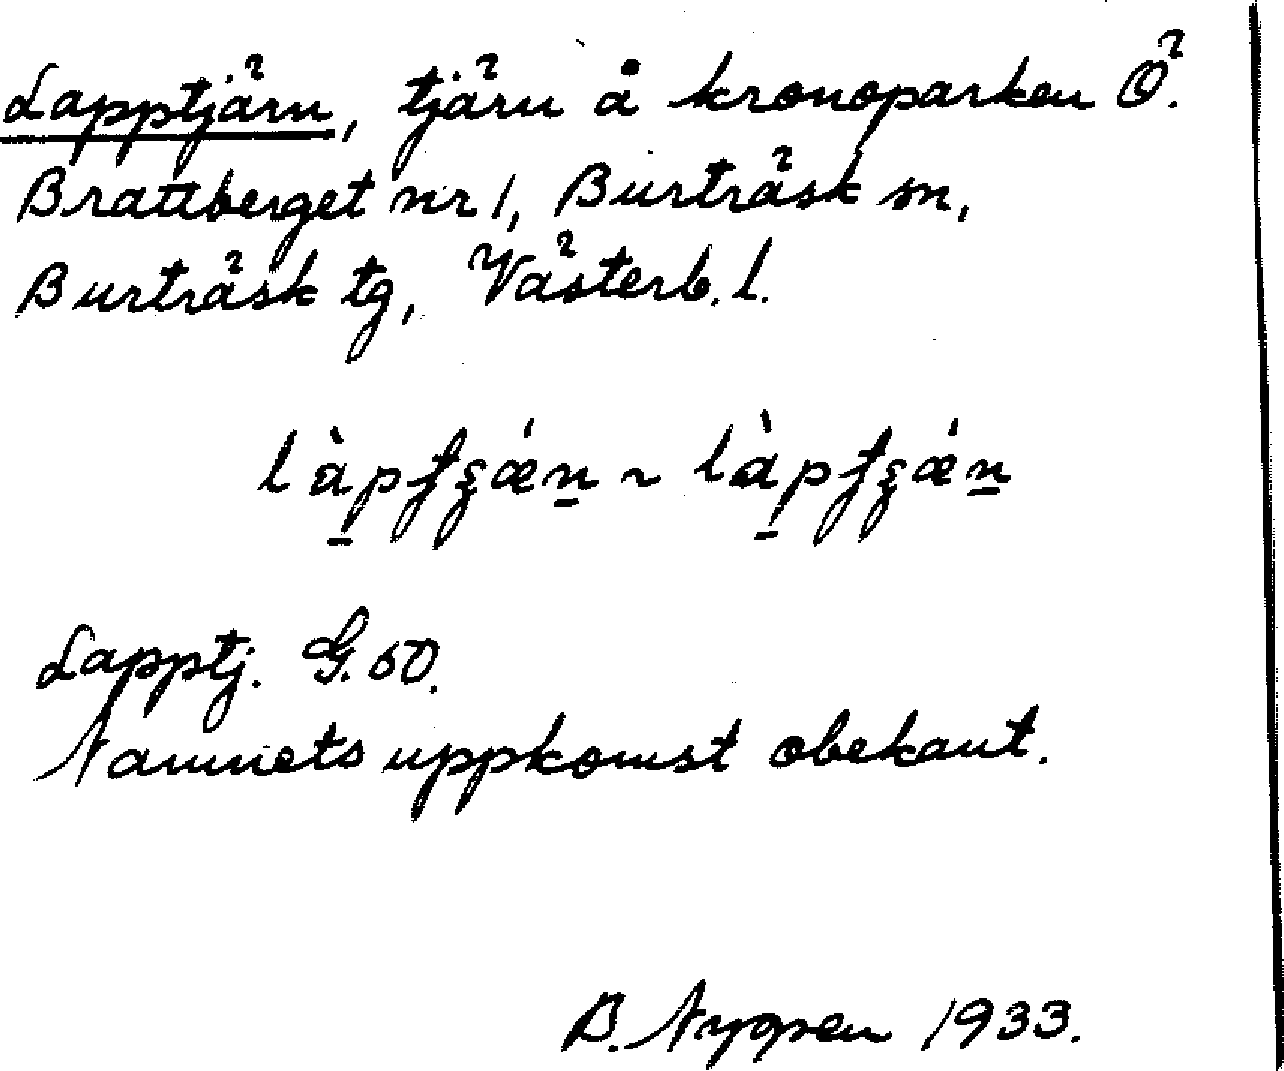 Lapptjärn, tjärn å kronoparken Ö.
Brattberget nr 1, Burträsk sn,
Burträsk tg, Västerb. l.
Lapptj. G. 50.
Namnets uppkomst obekant.
B. Nygren 1933.